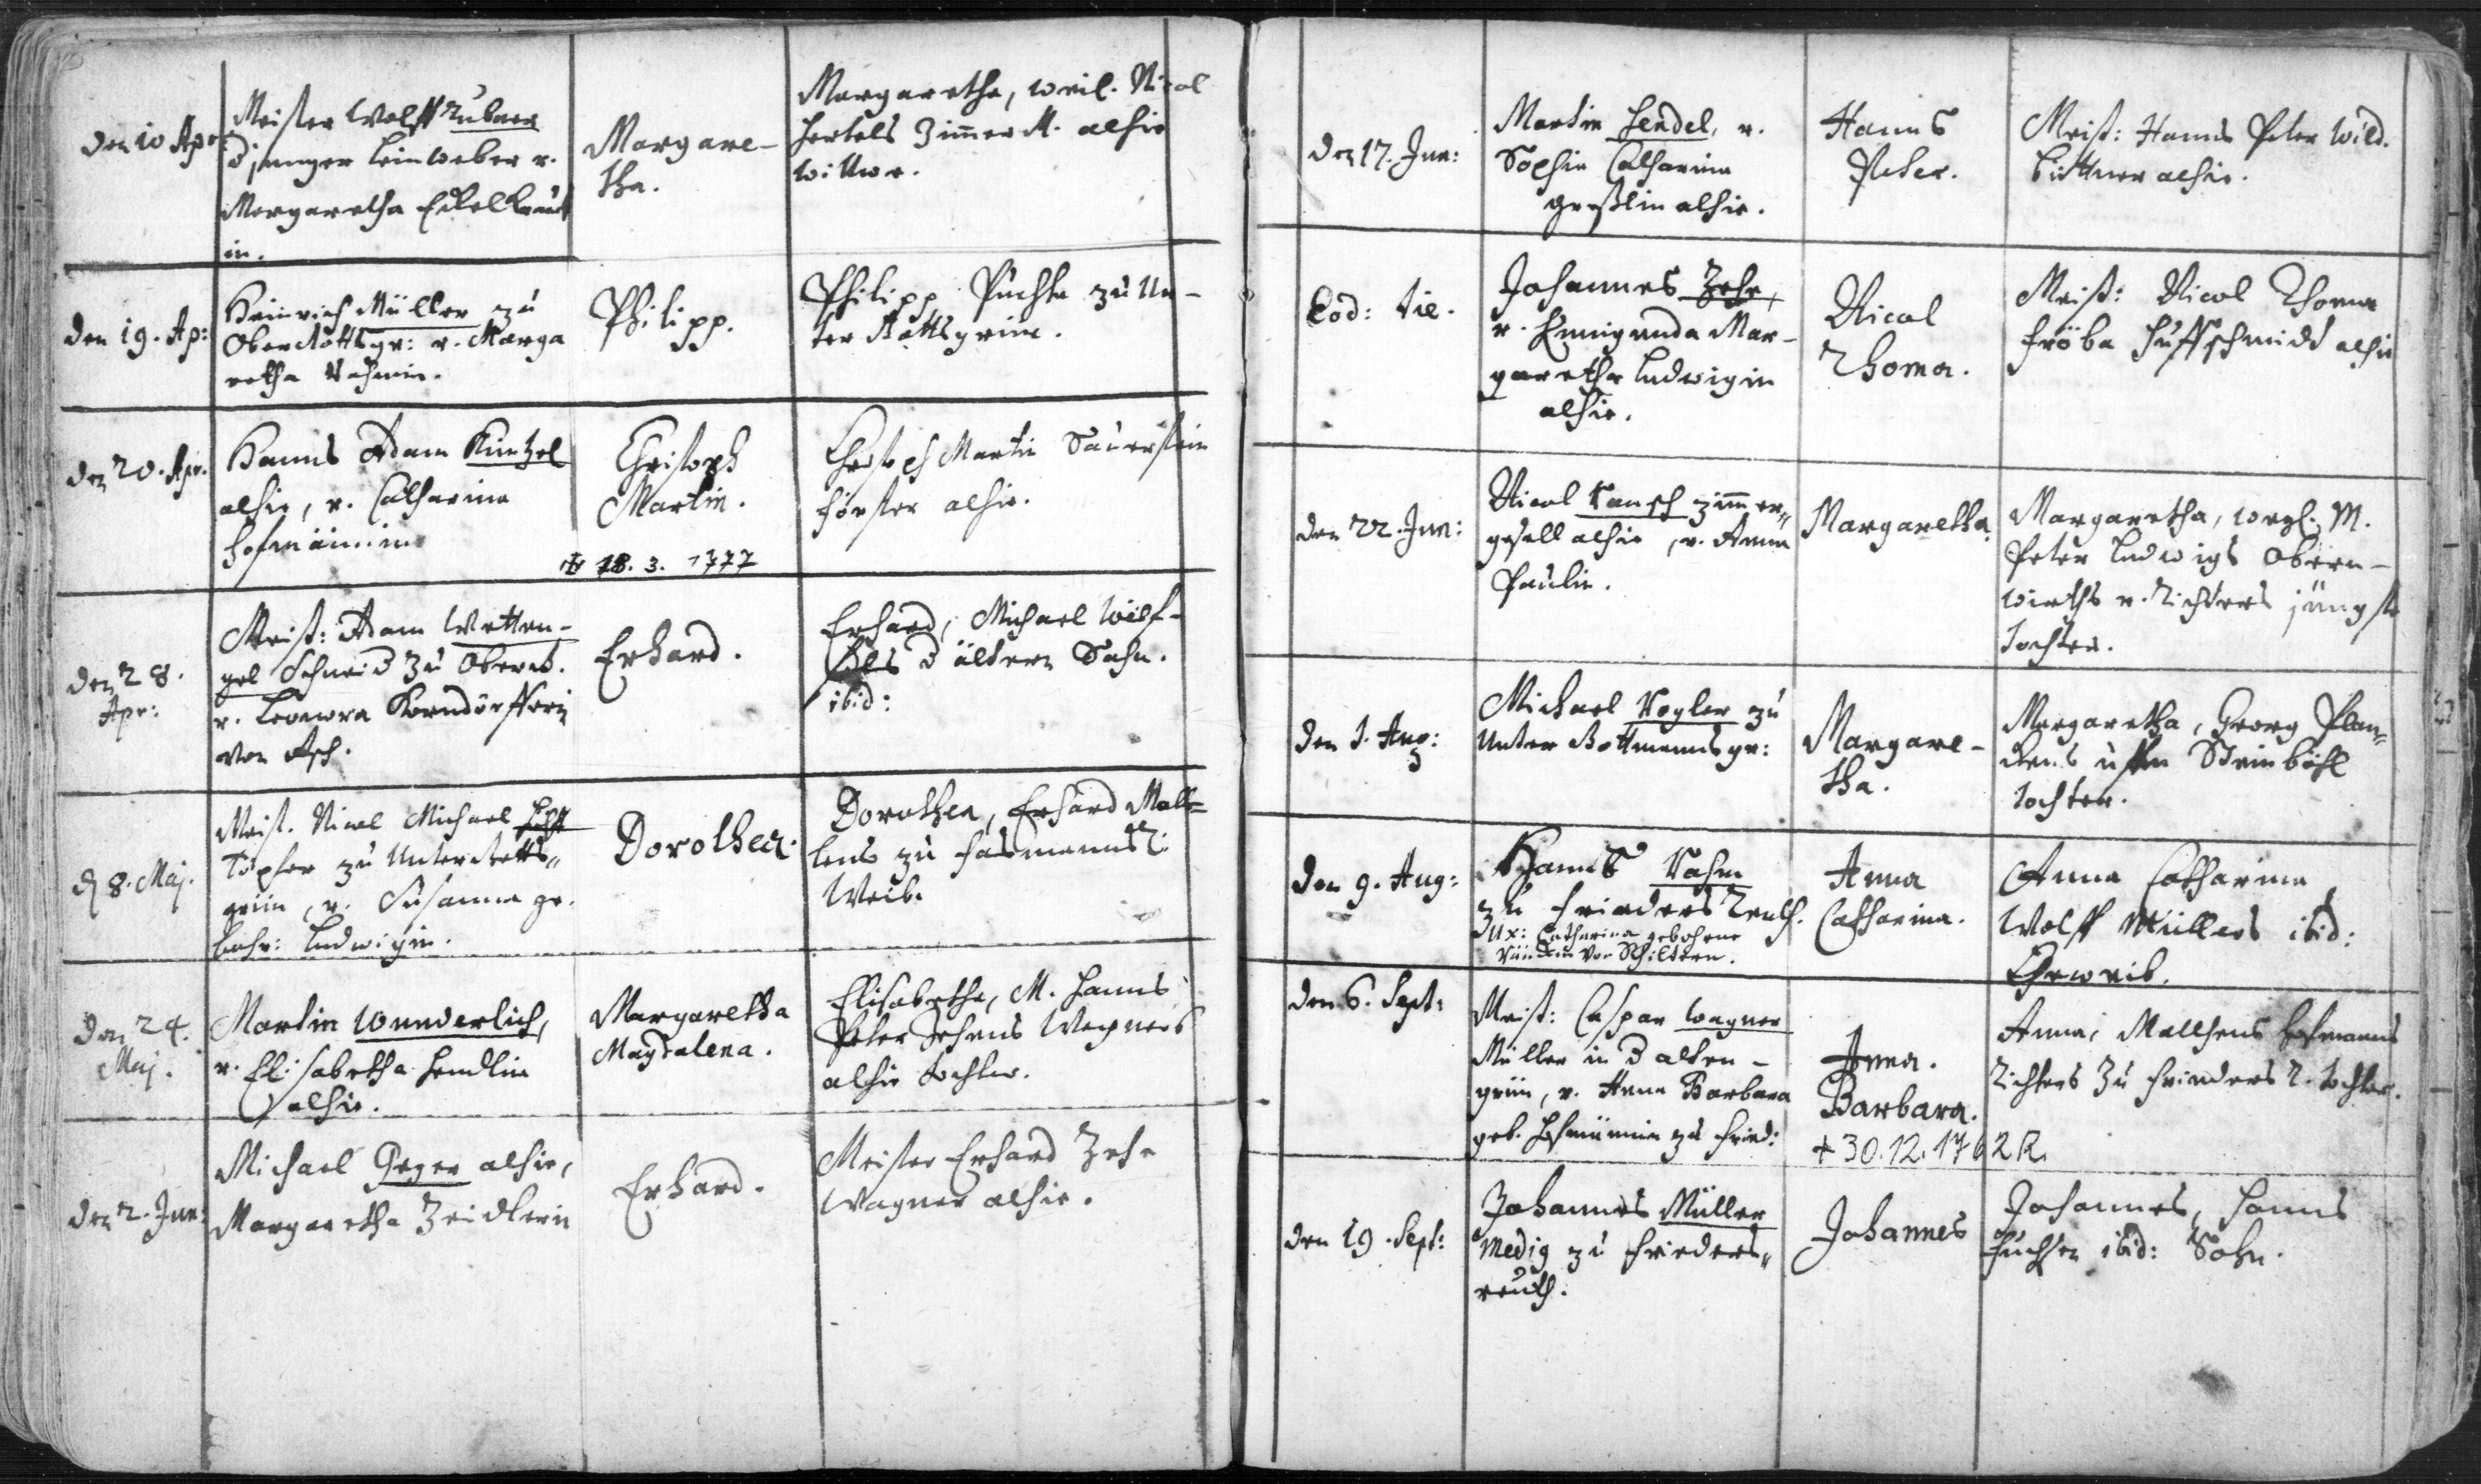 den 10 Apr.
Meister Wolff Rubner
d. junger Leinweber v.
Margaretha
in.
Margare-
tha.
Margaretha, weil. Nicol
Hertels Zimmer M. alhie
Wittwe.
den 19. Ap:
Heinrich Müller zu
Ober Rottsgr: v. Marga
retha
Philipp.
Philipp Puchta zu Un-
ter Rottsgrün.
den 20. Apr.
Hanns Adam Künzel
alhie, v. Catharina
Hofmännin
Christoph
Martin.
✝ 18. 3. 1777
Christoph Martin Sauerstein
Förster alhie.
den 28.
Apr:
Meist: Adam Wetten-
gel Schneid zu Obernb.
v. Leonora Korndörfferin
von Asch.
Erhard.
Erhard, Michael Wilf-
d ältern Sohn.
ibid:
d 8. Maj.
Meist. Nicol Michael
Töpfer zu Unter Rotts„
grün, v. Susanna ge-
bohr: Ludwigin.
Dorothea.
Dorothea, Erhard
zu Hasmannsr.
Weib.
den 24.
Maj.
Martin Wunderlich,
v. Elisabetha Hendlin
alhie.
Margaretha
Magdalena.
Elisabetha, M. Hanns
Peter Wagners
alhie Tochter.
den 2. Jun:
Michael Geyer alhie,
Margaretha Zeidlerin
Erhard.
Meister Erhard Zeh
Wagner alhie.
den 17. Jun:
Martin Hendel, v.
Sophia Catharina
alhie.
Hanns
Peter.
Meist: Hanns Peter Wild.
Büttner alhie.
Eod: die.
Johannes Zeh,
v. Kunigunda Mar-
garetha Ludwigin
alhie.
Nicol
Thoma.
Meist: Nicol Thoma
Fröba Huffschmidt alhie
den 22. Jun:
Nicol Rausch Zimmer„
gesell alhie, v. Anna
Paulin.
Margaretha.
Margaretha, M.
Peter Ludwigs Obern-
wirths v. Richters jüngste
Tochter.
den 1. Aug:
Michael Vogler zu
Unter Rottmannsgr:
Margare-
tha.
Margaretha, Georg Plan„
Steinböhl
Tochter.
den 9. Aug:
Hanns
zu Friedersreuth.
Ux: Catharina gebohrne
von Schiltern.
Anna
Catharina.
Anna Catharina
Wolff Müllers ibid:
Eheweib.
den 6. Sept:
Meist: Caspar Wagner
Müller in d alten-
grün, v. Anna Barbara
geb. Hofmännin zu Fried:
Anna.
Barbara.
+ 30.12.1762 R.
Anna, Matthens Hofmanns
Richters zu Frieders R. Tochter.
den 19. Sept:
Johannes Müller
Medig zu Frieders„
reuth.
Johannes
Johannes, Hanns
Fuchsen ibid: Sohn.